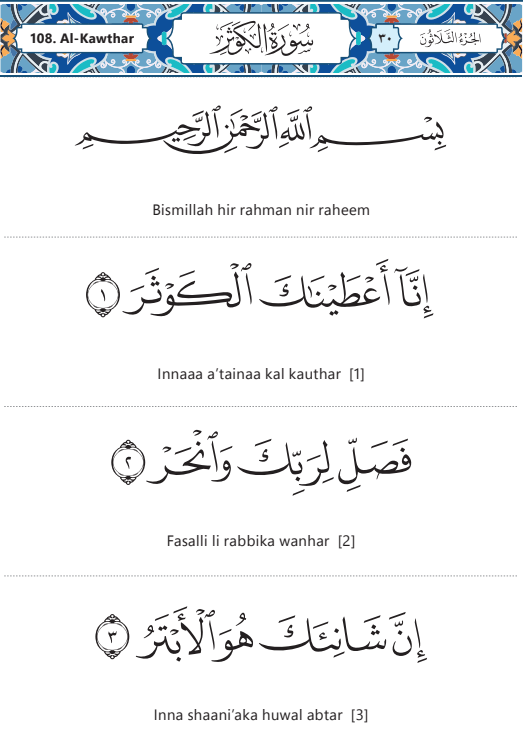 108. Al-Kawthar
سُورَةُ الكَوْثَرِ
٣٠
الجُزْءُ الثَّلَاثُونَ
بِسْمِ ٱللَّهِ ٱلرَّحْمَٰنِ ٱلرَّحِيمِ
Bismillah hir rahman nir raheem
إِنَّآ أَعْطَيْنَٰكَ ٱلْكَوْثَرَ ١
Innaaa a'tainaa kal kauthar [1]
فَصَلِّ لِرَبِّكَ وَٱنْحَرْ ٢
Fasalli li rabbika wanhar [2]
إِنَّ شَانِئَكَ هُوَ ٱلْأَبْتَرُ ٣
Inna shaani'aka huwal abtar [3]